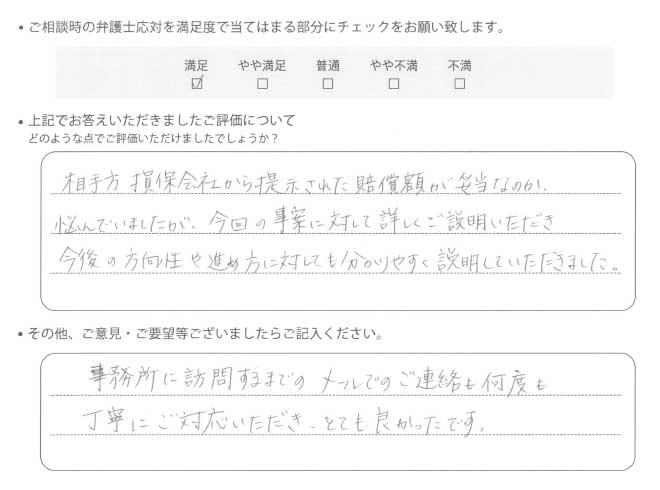 ・ご相談時の弁護士応対を満足度で当てはまる部分にチェックをお願い致します。
満足 やや満足 普通 やや不満 不満
☑ □ □ □ □
・上記でお答えいただきましたご評価について
どのような点でご評価いただけましたでしょうか？
相手方 損保会社から提示された賠償額が妥当なのか、
悩んでいましたが、今回の事案に対して詳しくご説明いただき
今後の方向性や進め方に対しても分かりやすく説明していただきました。
・その他、ご意見・ご要望等ございましたらご記入ください。
事務所に訪問するまでのメールでのご連絡も何度も
丁寧にご対応いただき、とても良かったです。